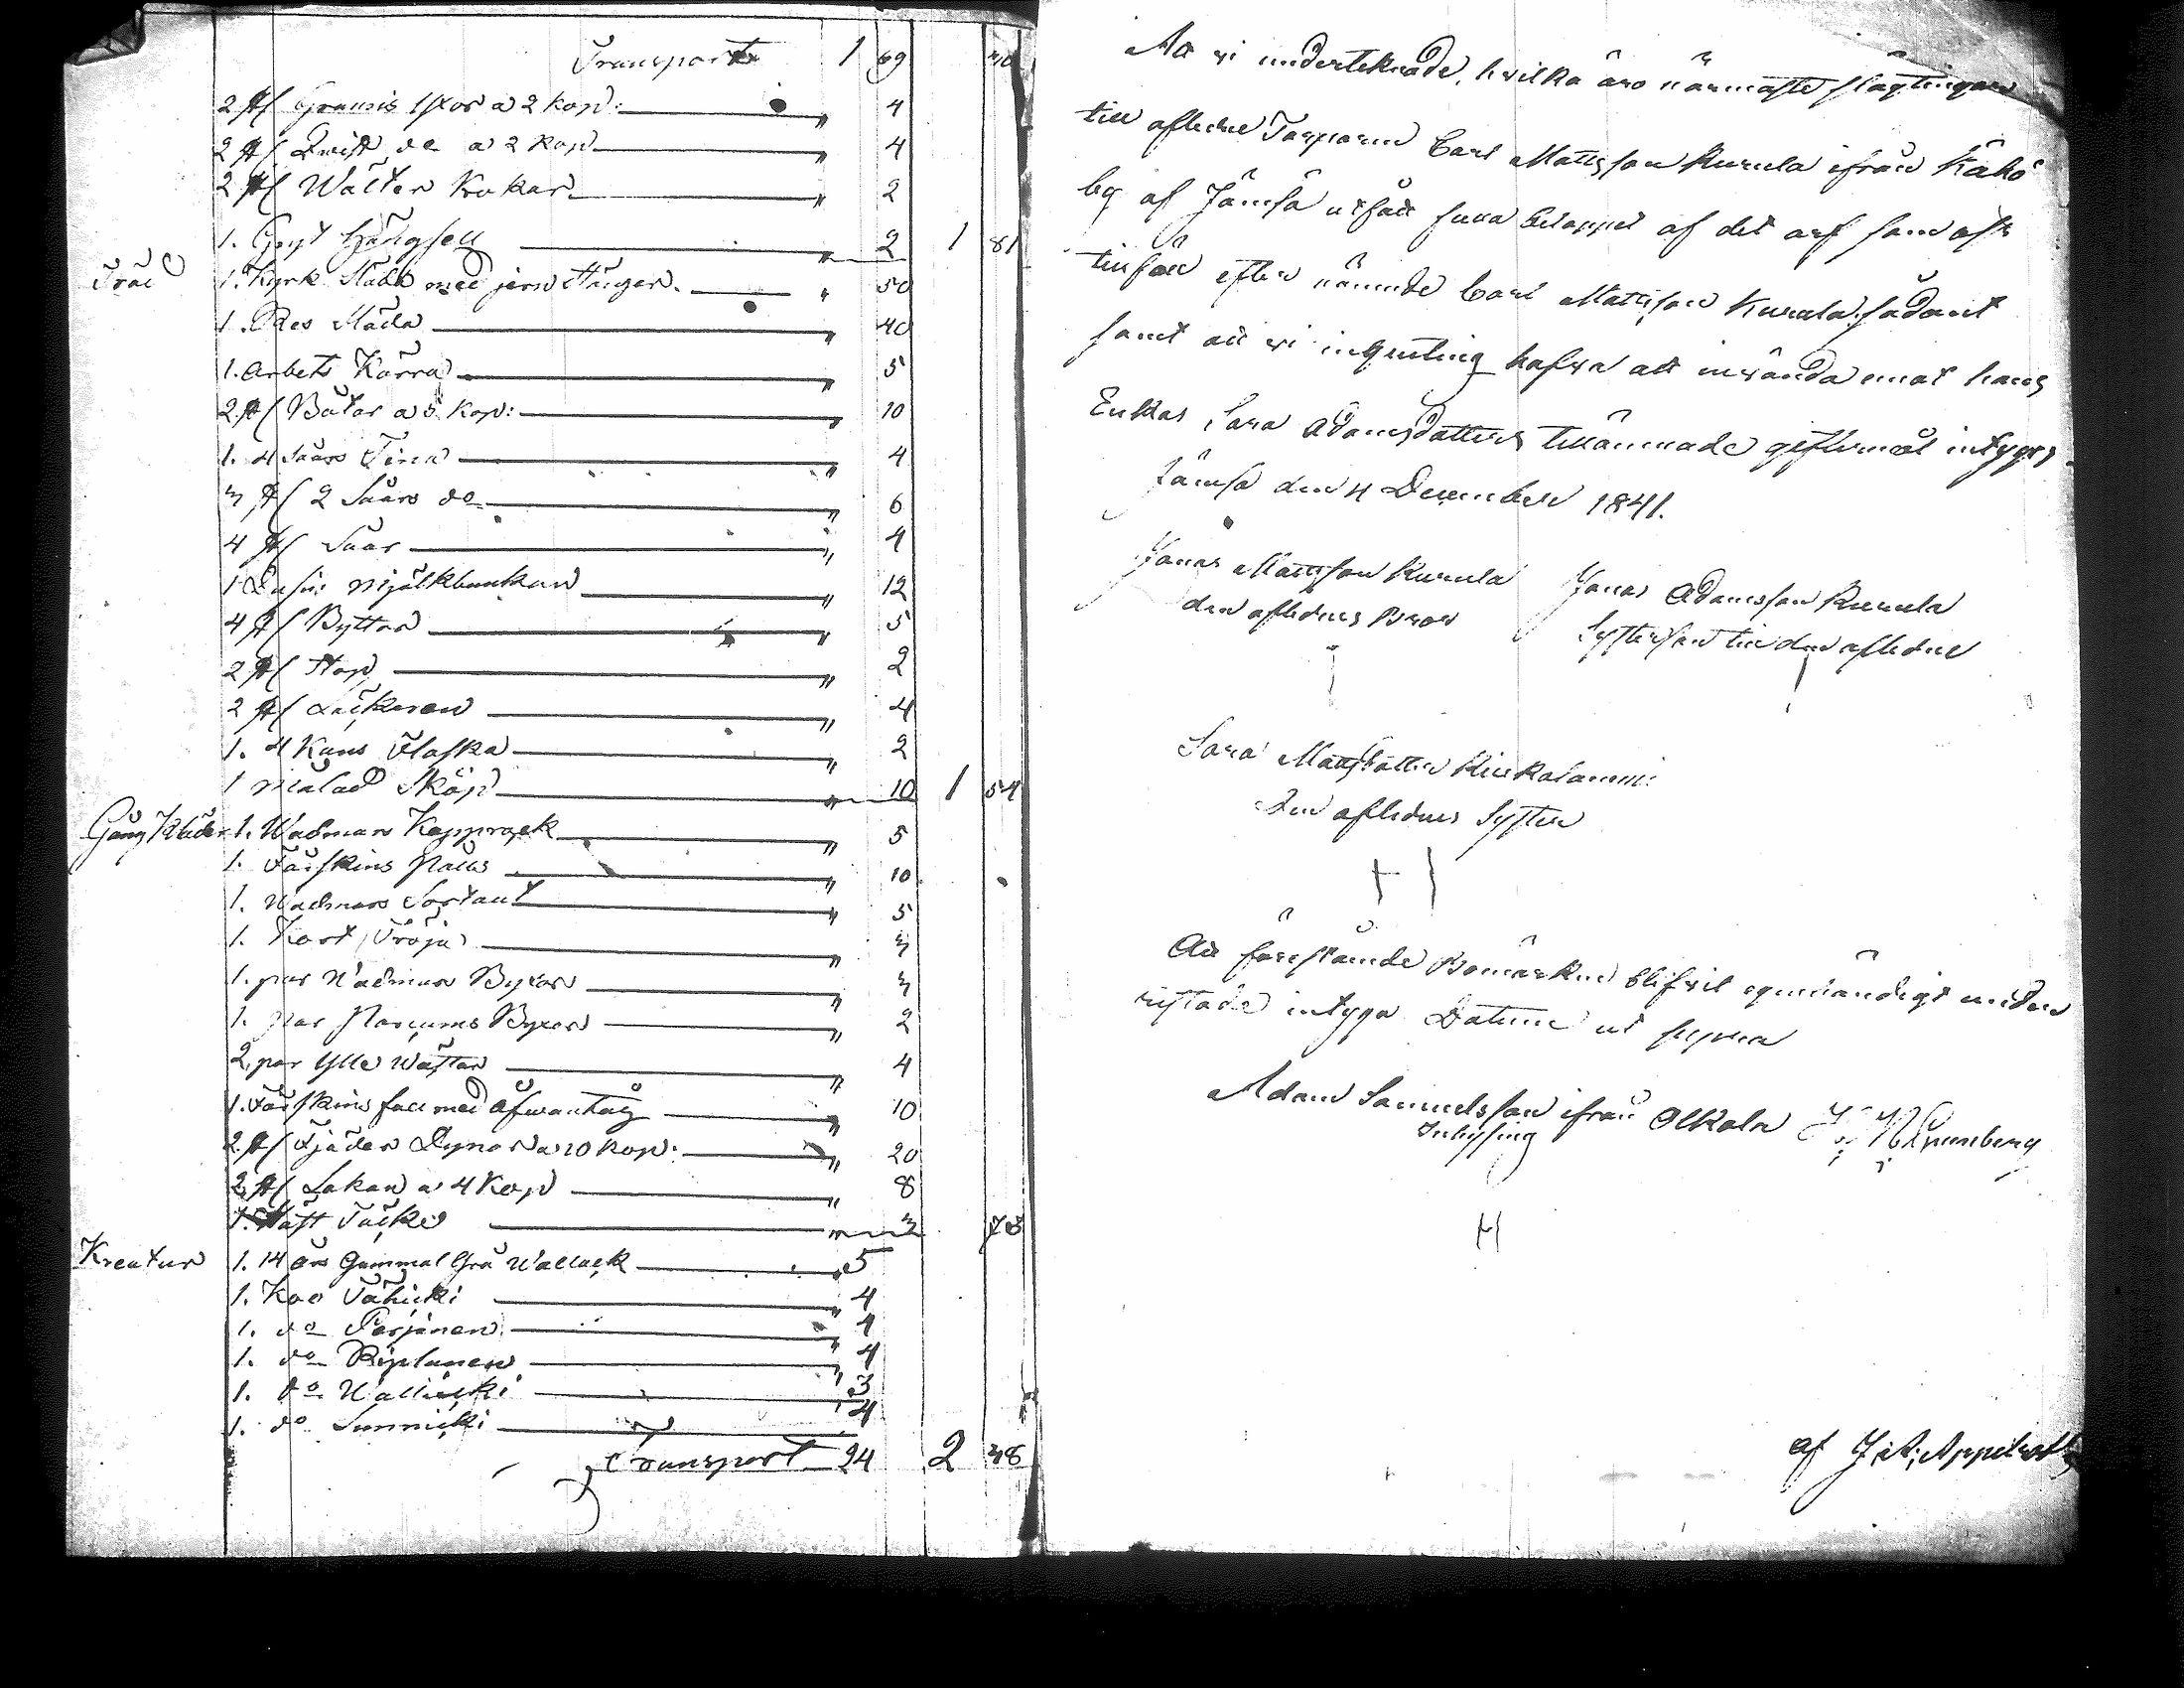 Transport 1 69
2 st Graunis Yxor a 2 kop: " 4
2 st Qvist do a 2 kop " 4
2 st Wälten Krokar " 2
1. Gryt hängsell " 2 1 81
Träd 1. Kyrk Släde med jern " 50
1. Res Släda " 40
1. Arbets Kärra " 5
2 st Båtar a 5 kop: " 10
1. 4 Såårs Tina " 4
3 st 2 Såårs do " 6
4 st Såår " 4
1 Dusin mjölkbunkar " 12
4 st Byttor " 5
2 st Stop " 2
2 st " 4
1. 4 Kans Flaska " 2
1 målad Skåp " 10 1 54
Gång Kläder 1. Wadmars Kapprock " 5
1. Fårskins Päls " 10
1. Wadmars Sortaut " 5
1. Kort Tröja " 3
1. par Wadmars Byxor " 3
1. par Byxor " 2
2 par Ylle Wattar " 4
1. Fårskins fäll med " 10
2 st Fjäder Dynor a 10 kop: " 20
2 st Lakan a 4 Kop " 8
1. Täcke " 3
Kreatur 1. 14 års Gammal Grå Wallack " 5
1. Koo " 4
1. do Terjänen " 4
1. do " 4
1. do " 3
1. do " 4
Transport 24 2 38
Att vi undertecknade, hvilka äro närmaste slägtingar
till aflidne Torparen Carl Mattsson Kurula ifrån Kähö
by af Jämsä utfått fulla beloppet af det arf som oss
tillfall efter nämnde Carl Mattsson Kurula sådant
samt att vi ingenting hafva att invända emot hans
Enkas Sara Adamsdotters tillämnade giftermål intygas
Jämsä den 4 December 1841.
Jonas Mattsson Kurula Jonas Adamsson Kurula
den aflidnes Bror Systerson till den aflidne
Sara Mattsdotter
Den aflidnes Syster
Att förestående Bomärken blifvit egenhändigt under
ristade intyga Datum ut supra
Adam Samuelsson ifrån Olkola
Inhysing
af